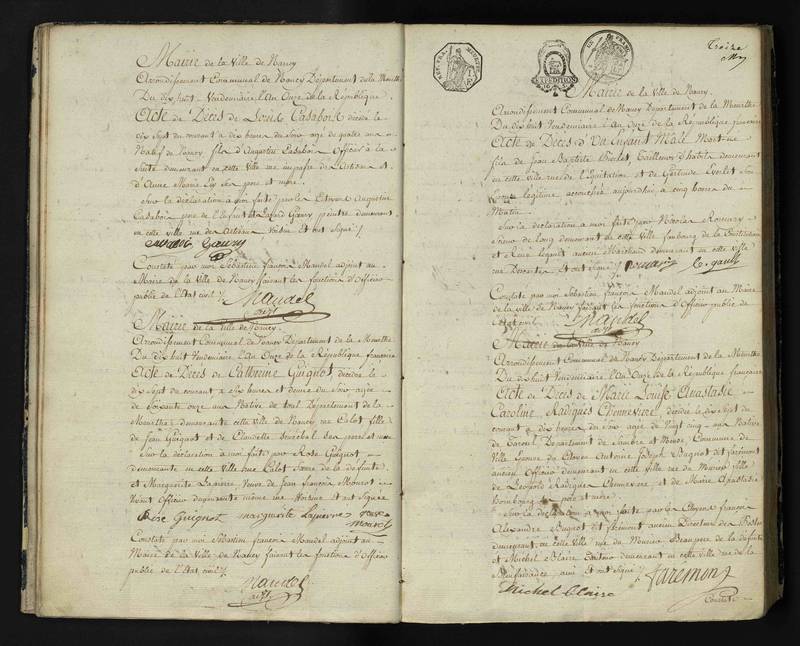 Mairie de la Ville de Nancy
Arrondissement Communal de Nancy Département de la Meurthe
Du dix huit Vendemiaire l'An Onze de la République
Acte de Décès de Louis Casabois décédé le
dix sept du courant à dix heures du Soir agé de quatre ans
Natif de Nancy fils d'Augustin Casabois Officier à la
Suite demeurant en cette ville rue des Artisans et
d'Anne Marie ses père et mère.
Sur la déclaration à moi faite par le Citoyen Augustin
Casabois père de l'Enfant et Gaury peintre demeurant
en cette ville rue des Artisans Voisin et ont Signé
Gaury
Constaté par moi Sebastien françois Mandel adjoint au
Maire de la Ville de Nancy faisant les fonctions d'Officier
public de l'Etat civil
Mandel
adjt
Mairie de la Ville de Nancy.
Arrondissement Communal de Nancy Département de la Meurthe
Du dix huit Vendemiaire l'an Onze de la République française
Acte de Décès de Catherine Guignot décédée le
dix sept du courant à six heures et demie du Soir agée
de Soixante onze ans Native de Toul Département de la
Meurthe demeurante cette ville de Nancy rue Callot fille
de Jean Guignot et de Claudette Senéchal ses père et mère
Sur la déclaration à moi faite par Rose Guignot
demeurante en cette Ville rue Callot Soeur de la défunte
et Marguerite Lapierre Veuve de Jean françois Mourot
Vivant Officier demeurante même rue Voisine et ont Signées
Rose Guignot marguerite Lapierre veuve
mourot
Constaté par moi Sebastien françois Mandel adjoint au
Maire de la Ville de Nancy faisant les fonctions d'Officier
public de l'Etat civil
Mandel
adjt
Treize
EXPEDITION
Mairie de la Ville de Nancy.
Arrondissement Communal de Nancy Département de la Meurthe
Du dix huit Vendemiaire l'An Onze de la République française
Acte de Décès d'Un Enfant Mâle Mort-né
fils de Jean Baptiste Tailleur d'habits demeurant
en cette ville rue de l'Equitation et de Gertrude son
Epouse légitime accouchée aujourd'hui à cinq heures du
Matin
Sur la déclaration à moi faite par Nicolas
demeurant de cette Ville faubourg de la Constitution
et René Legault ancien Marchand demeurant en cette ville
rue et ont Signé
Le gault
Constaté par moi Sebastien françois Mandel adjoint au Maire
de la Ville de Nancy faisant les fonctions d'Officier public de
l'Etat civil
Mandel
adjt
Mairie de la Ville de Nancy
Arrondissement Communal de Nancy Département de la Meurthe
Du dix huit Vendemiaire l'An Onze de la République française
Acte de Décès de Marie Louise Anastasie
Caroline Radigues Chennevière, décédée le dix Sept du
courant à dix heures du Soir agée de Vingt cinq ans Native
de Département de Sambre et Meuse, Commune de
Ville Epouse du Citoyen Antoine Joseph Bugnot dit farémont
ancien Officier demeurant en cette ville rue du fille
de Léopold Radigues Chennevière et de Marie Anastasie
ses père et mère.
Sur la déclaration à moi faite par le Citoyen françois
Alexandre Bugnot dit farémont ancien Directeur des Postes
demeurant en cette ville rue du Beau père de la défunte
et Michel Blaise demeurant en cette ville rue de la
ami et ont Signé
faremont
Michel Blaise
Constaté